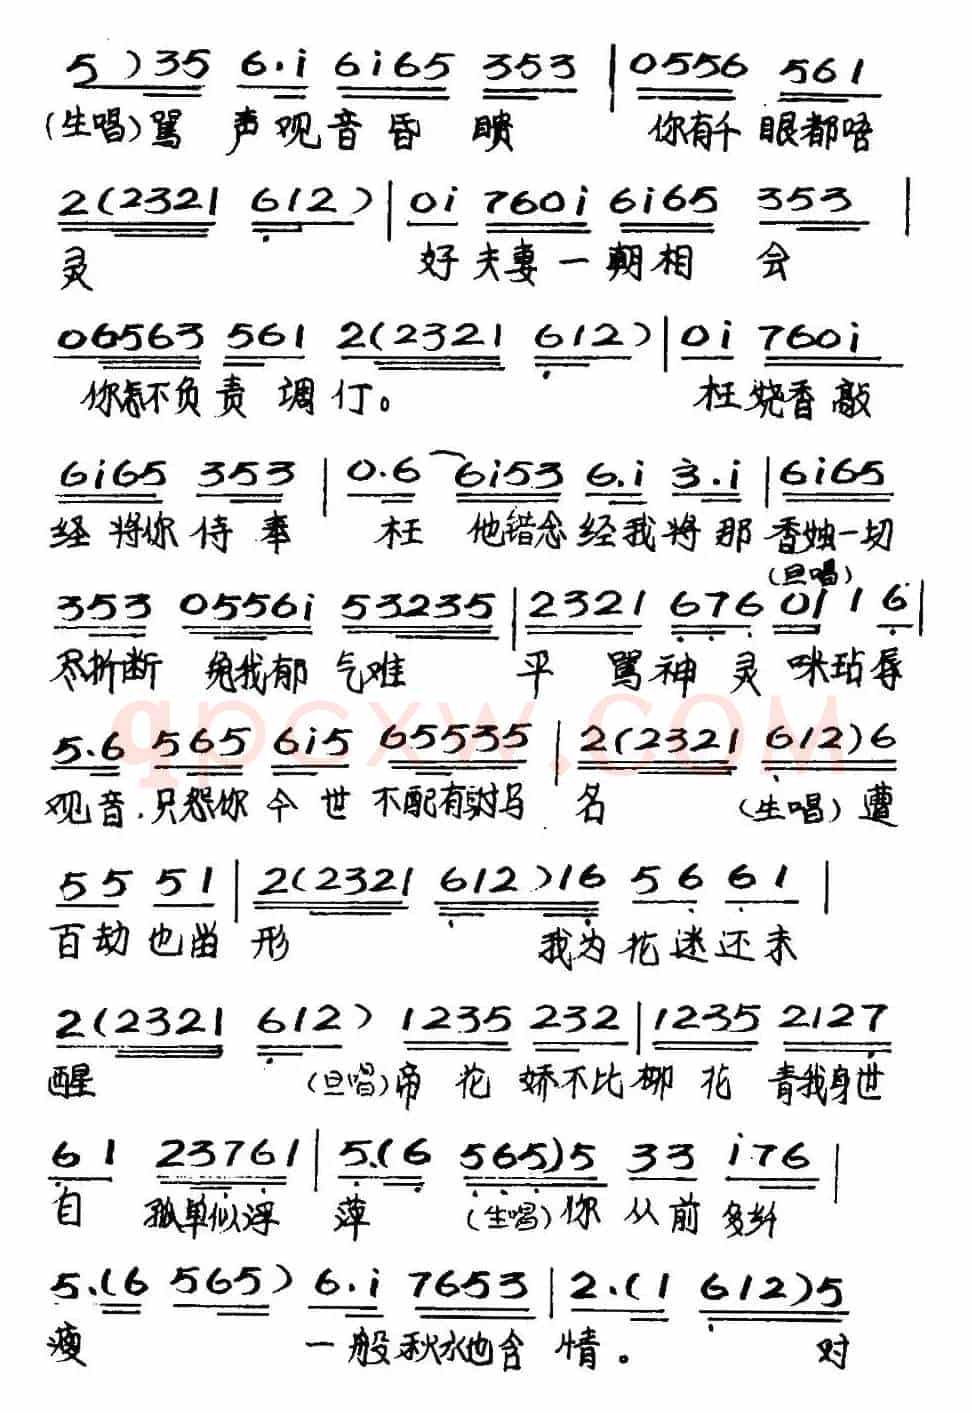 5 ) 35 6.i 6i65 353 | 05556 561
(生唱) 骂 声观音昏 聩 你有千眼都唔
2(2321 612) | 0i 760i 6i65 353 |
灵 好夫妻一朝相 会
06563 561 2(2321 612) | 0i 760i
你怎不负责调停。 枉烧香敲
6i65 353 | 0.6 6i53 6.i 3.i | 6i65
经将你侍奉 枉 他错念经我将那香烛一切
(旦唱)
353 0556i 53235 | 2321 676 01 1 6 |
尽折断 免我郁气难 平 骂神灵 咪玷辱
5.6 565 6i5 65535 | 2(2321 612)6
观音.只怨你今世不配有驸马 名 (生唱) 遭
55 51 | 2(2321 612)16 56 61 |
百劫也凿 形 我为花迷还未
2(2321 612) 1235 232 | 1235 2127
醒 (旦唱)帝花娇不比柳花 青我身世
61 23761 | 5.(6 565)5 33 i76 |
自 孤单似浮 萍 (生唱) 你从前多纤
5.(6 565) 6.i 7653 | 2.(1 612)5
瘦 一般秋水也含 情。 对
qpcxw.COM